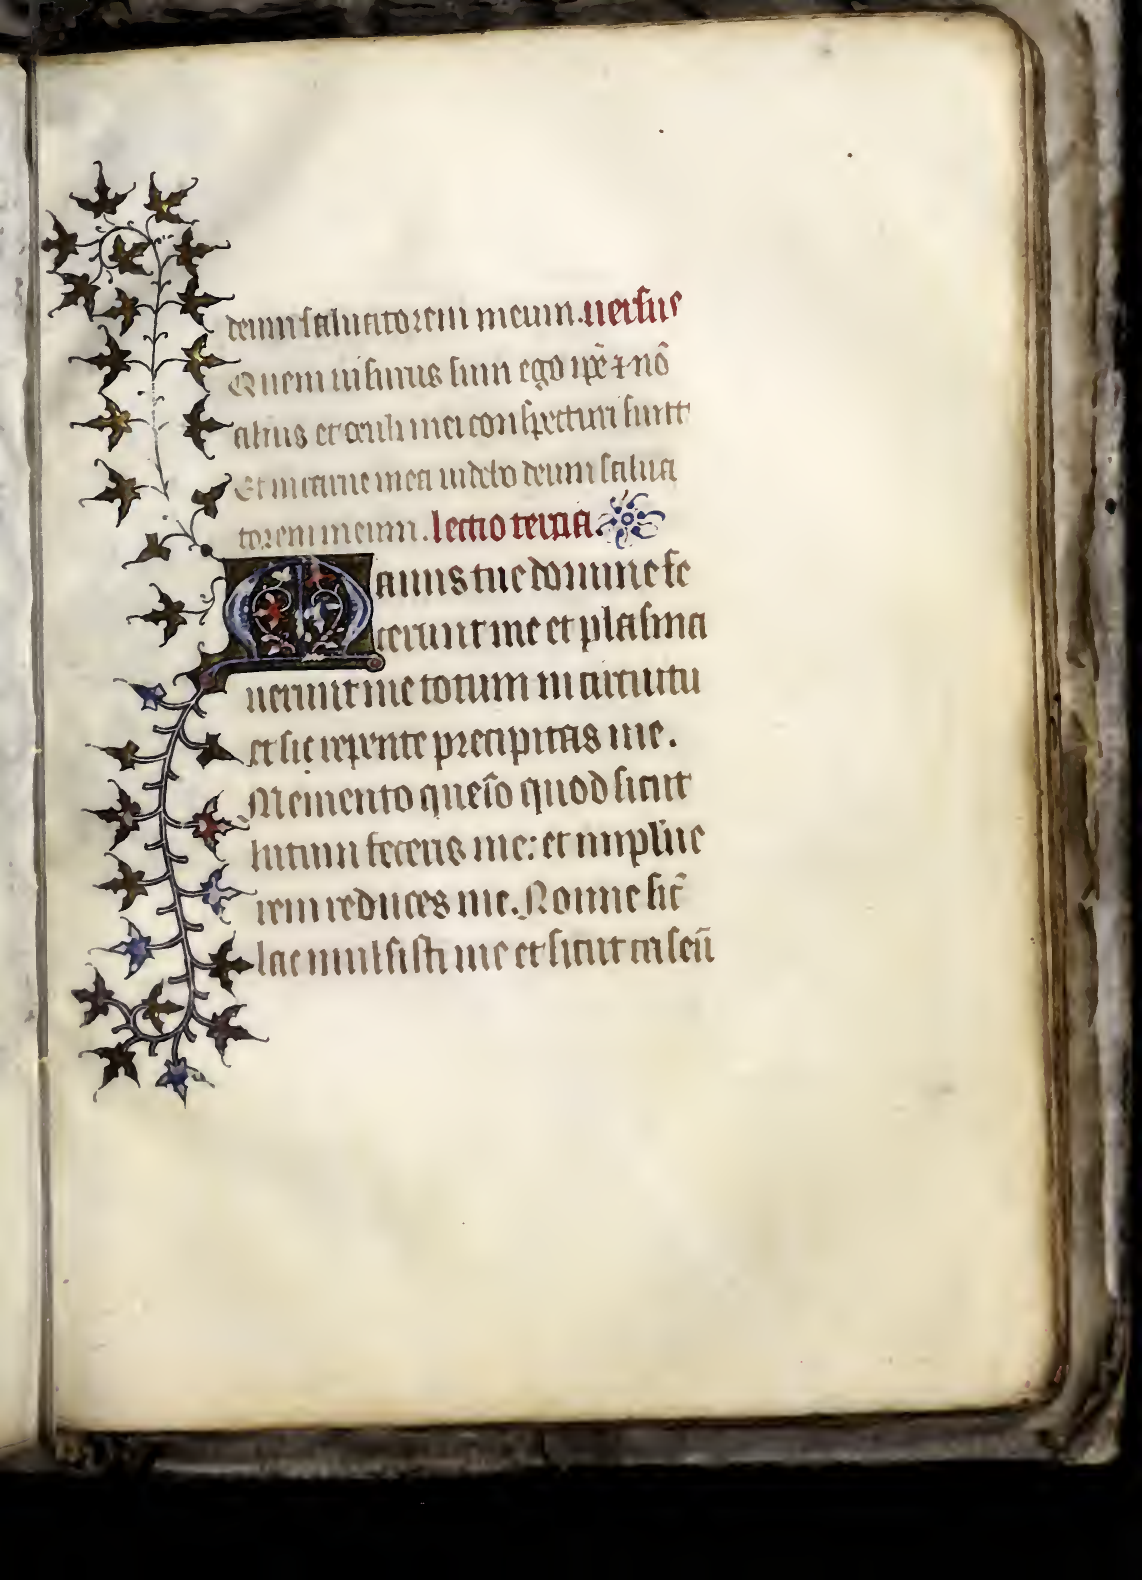 deum saluatorem meum. uersus
Quem uisurus sum ego ip̄e ⁊ nō
alius et oculi mei conspecturi sunt
Et in carne mea uidebo deum salua
torem meum. lectio tercia.
Manus tue domine fe
cerunt me et plasma
uerunt me totum in circuitu
et sic repente precipitas me.
Memento queſo quod sicut
lutum feceris me: et in pulue
rem reduces me. Nonne sic̄
lac mulsisti me et sicut caseū